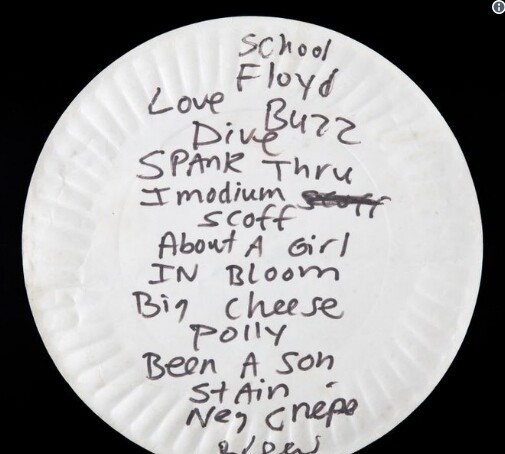 School
Floyd
Love Buzz
Dive
SPANK Thru
Imodium
Scoff
About A Girl
IN Bloom
Big Cheese
Polly
Been A Son
Stain
Neg Crepe